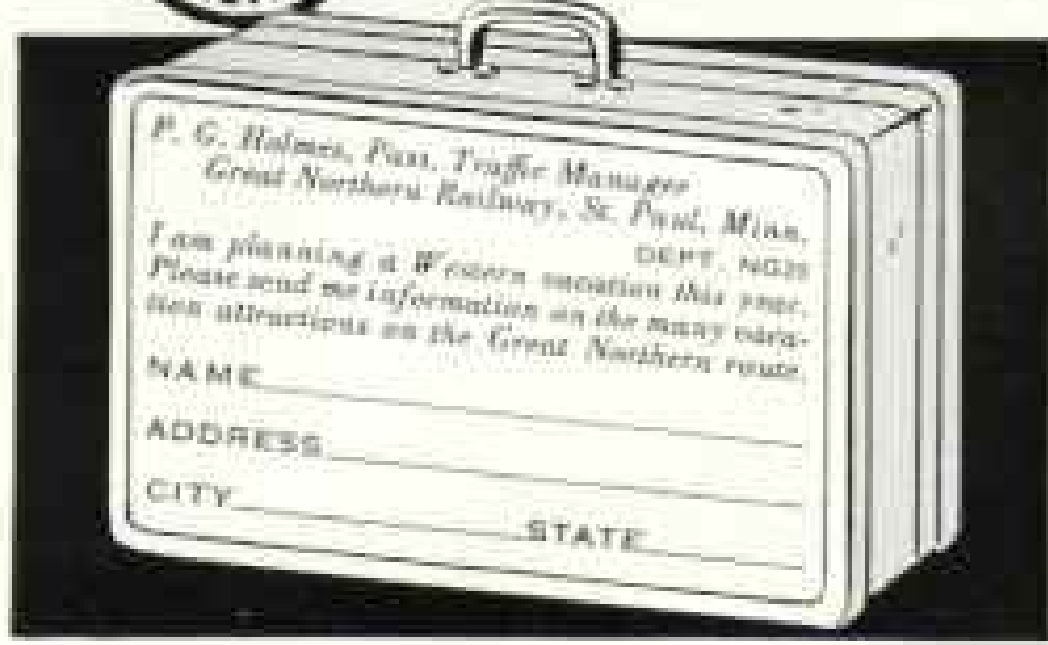 P. G. Holmes, Pass. Traffic Manager
Great Northern Railway, St. Paul, Minn.
DEPT.
I am planning a Western vacation this year.
Please send me information on the many vaca-
tion attractions on the Great Northern route.
NAME
ADDRESS
CITY STATE